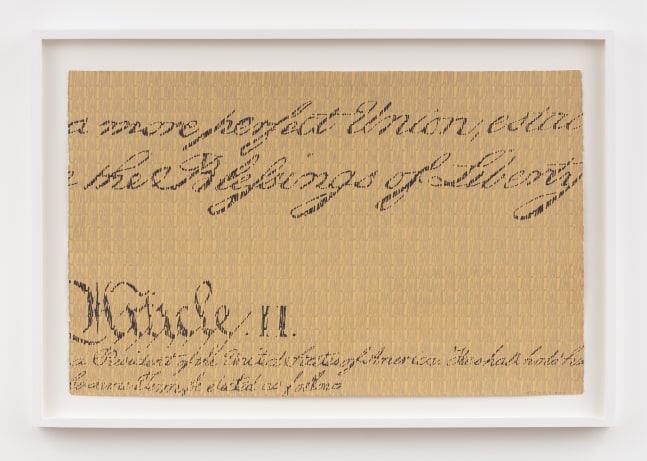 a more perfect Union, estab
e the Blessings of Liberty
Article. II.
a President of the United States of America. He shall hold his
be elected, as follows